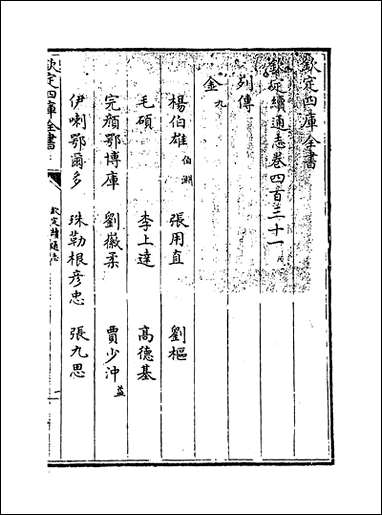 欽定四庫全書
欽定續通志卷四百三十一
列傳
金九
楊伯雄 伯淵 張用直 劉樞
毛碩 李上達 高德基
完顔鄂博庫 劉徽柔 賈少沖 益
伊喇鄂爾多 珠勒根彦忠 張九思
欽定四庫全書
欽定續通志
一